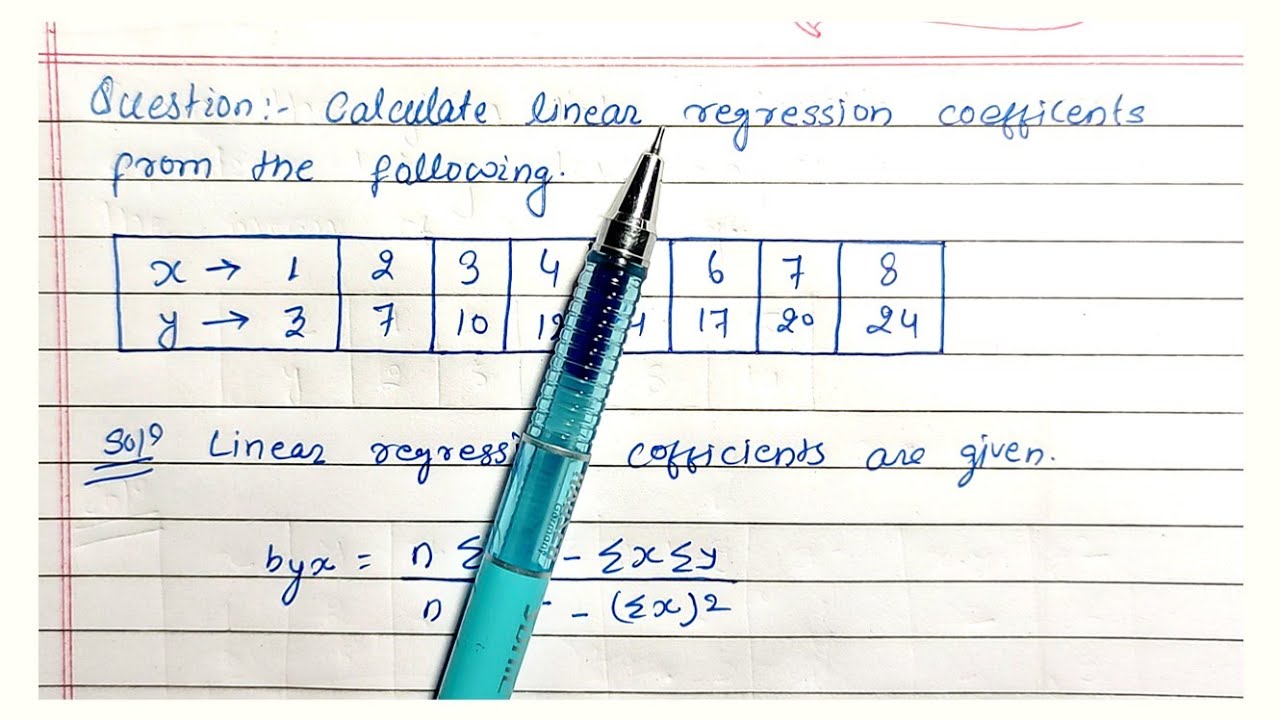 Question:- Calculate linear regression coefficents
from the following.
x → 1 2 3 4 6 7 8
y → 3 7 10 17 20 24
Soln Linear cofficients are given.
byx = n Σ - ΣxΣy
n - (Σx)2